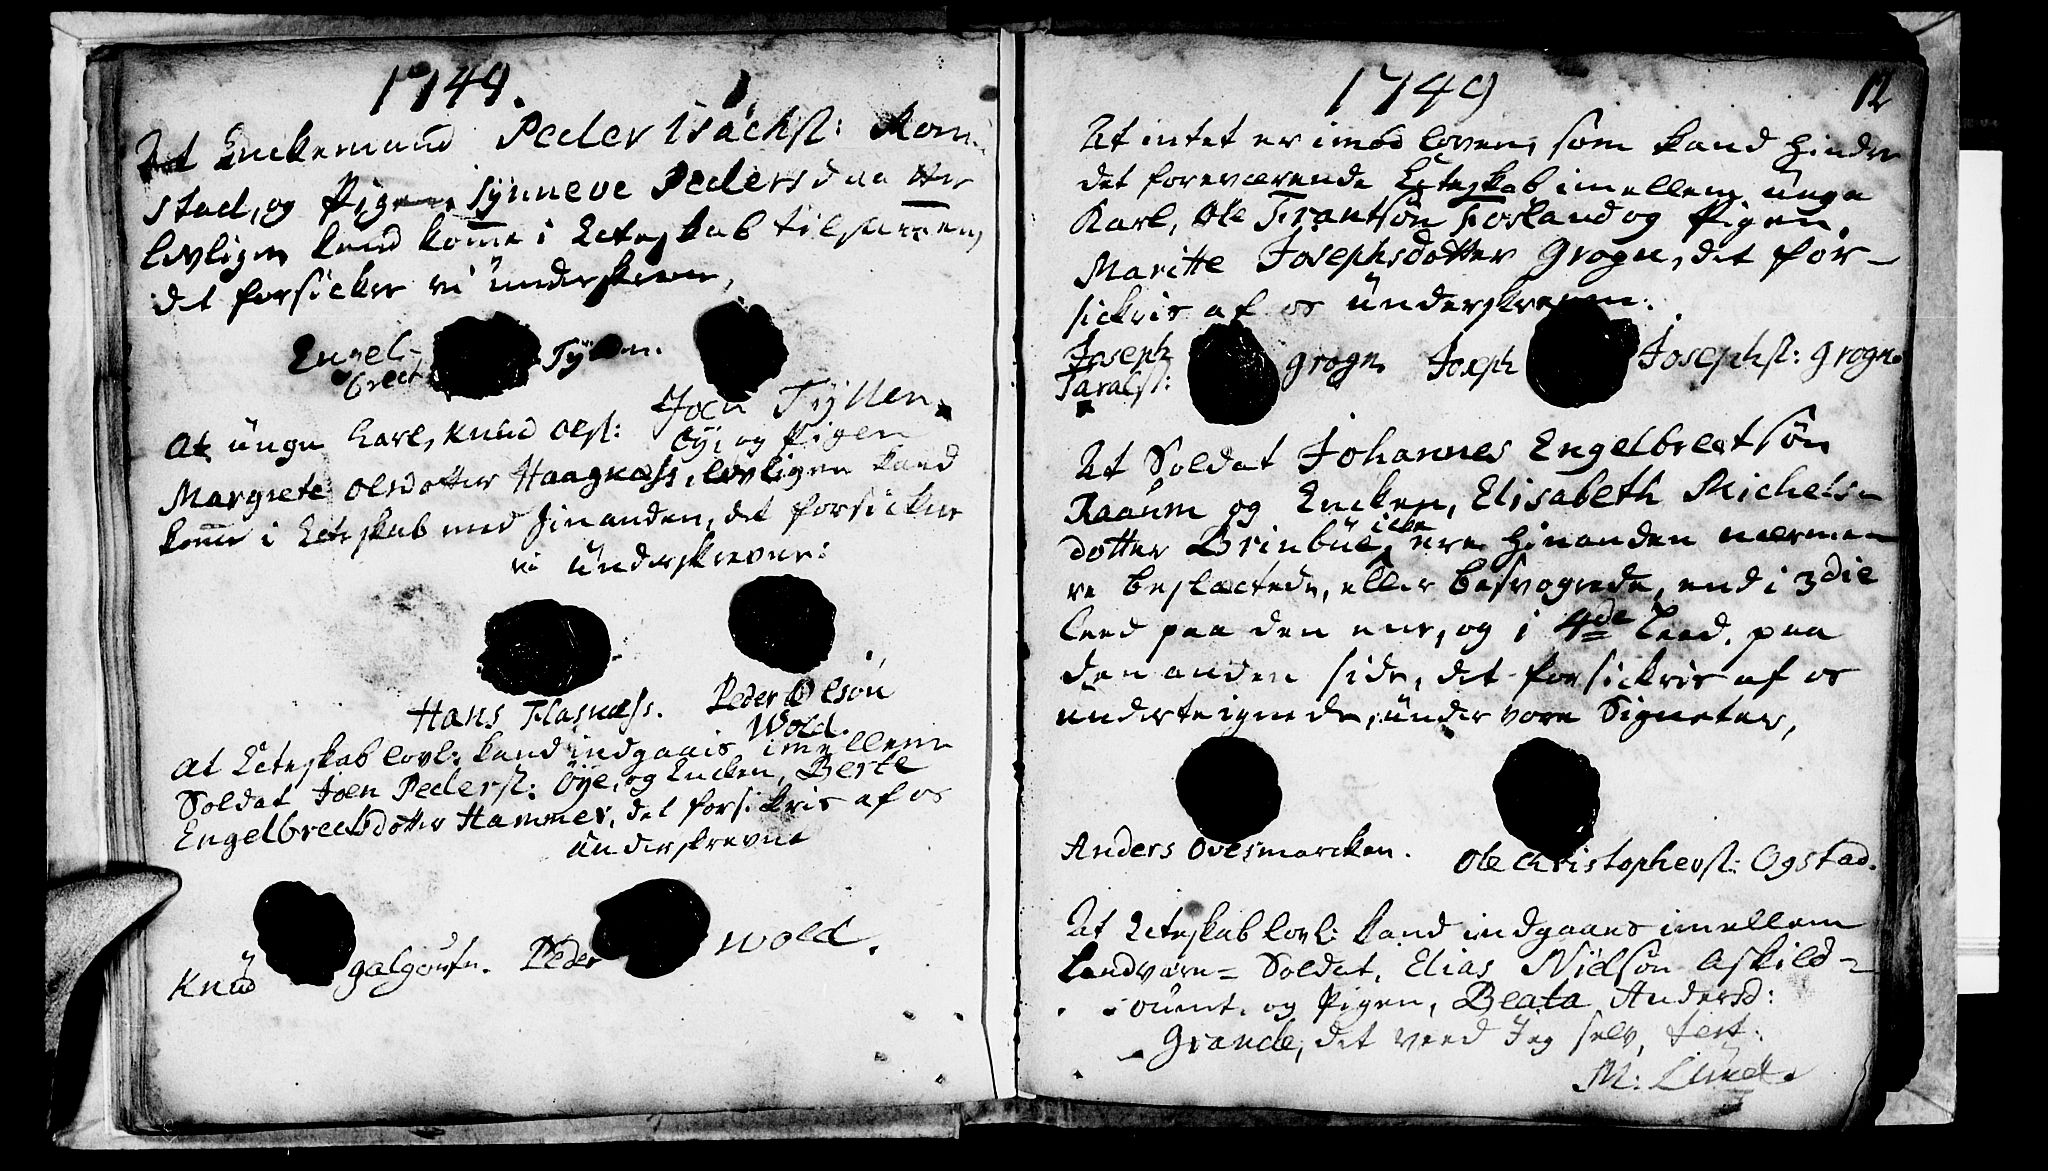 1749.
At Enckemand Peder Isachs: Rom-
stad, og Pigen Synneve Pedersdaatter
lovligen kand komme i Ecteskab tilsammen,
det forsicker vi underskrevne,
Engel-
brect Tyllen.
Joen Tyllen.
At unge Karl, Knud Ols: Øye, og Pigen
Margrete Olsdotter Haagnæss, lovligen kand
komme i Ecteskab med hinanden, det forsickrer
vi underskrevne:
Hans Flasnæss. Peder Olsøn
Wold.
At Ecteskab lovl: kand indgaais imellem
Soldat Joen Peders: Øye, og Encken, Berte
Engelbrectsdotter Hammer, det forsickris af os
underskrevne
Knud Galgoufn. Peder Wold.
1749
12
At intet er imod loven, som kand hindre
det foreværende Ecteskab imellem unge
Karl, Ole Frantsøn Fosland og Pigen,
Maritte Josephsdotter Grogn, det for-
sickris af os underskrevne.
Joseph
Taralss: Grogn Joseph Josephs: Grogn
At Soldat Johannes Engelbrectsøn
Raaum og Encken, Elisabeth Michels-
dotter Brinbue, icke ere hinanden nærme-
re beslæctede, eller besvogrede, end i 3die
Leed paa den ene, og i 4de Leed paa
den anden side, det forsickris af os
underteignede, under vore Signeter,
Anders Ovesmarcken. Ole Christophers: Ogstad.
At Ecteskab lovl: kand indgaaes imellem
Landværn= Soldat, Elias Nielsøn Askild-
ount. og Pigen, Beata Andersd:
Grande, det veed Jeg selv, test:
M: Lund.